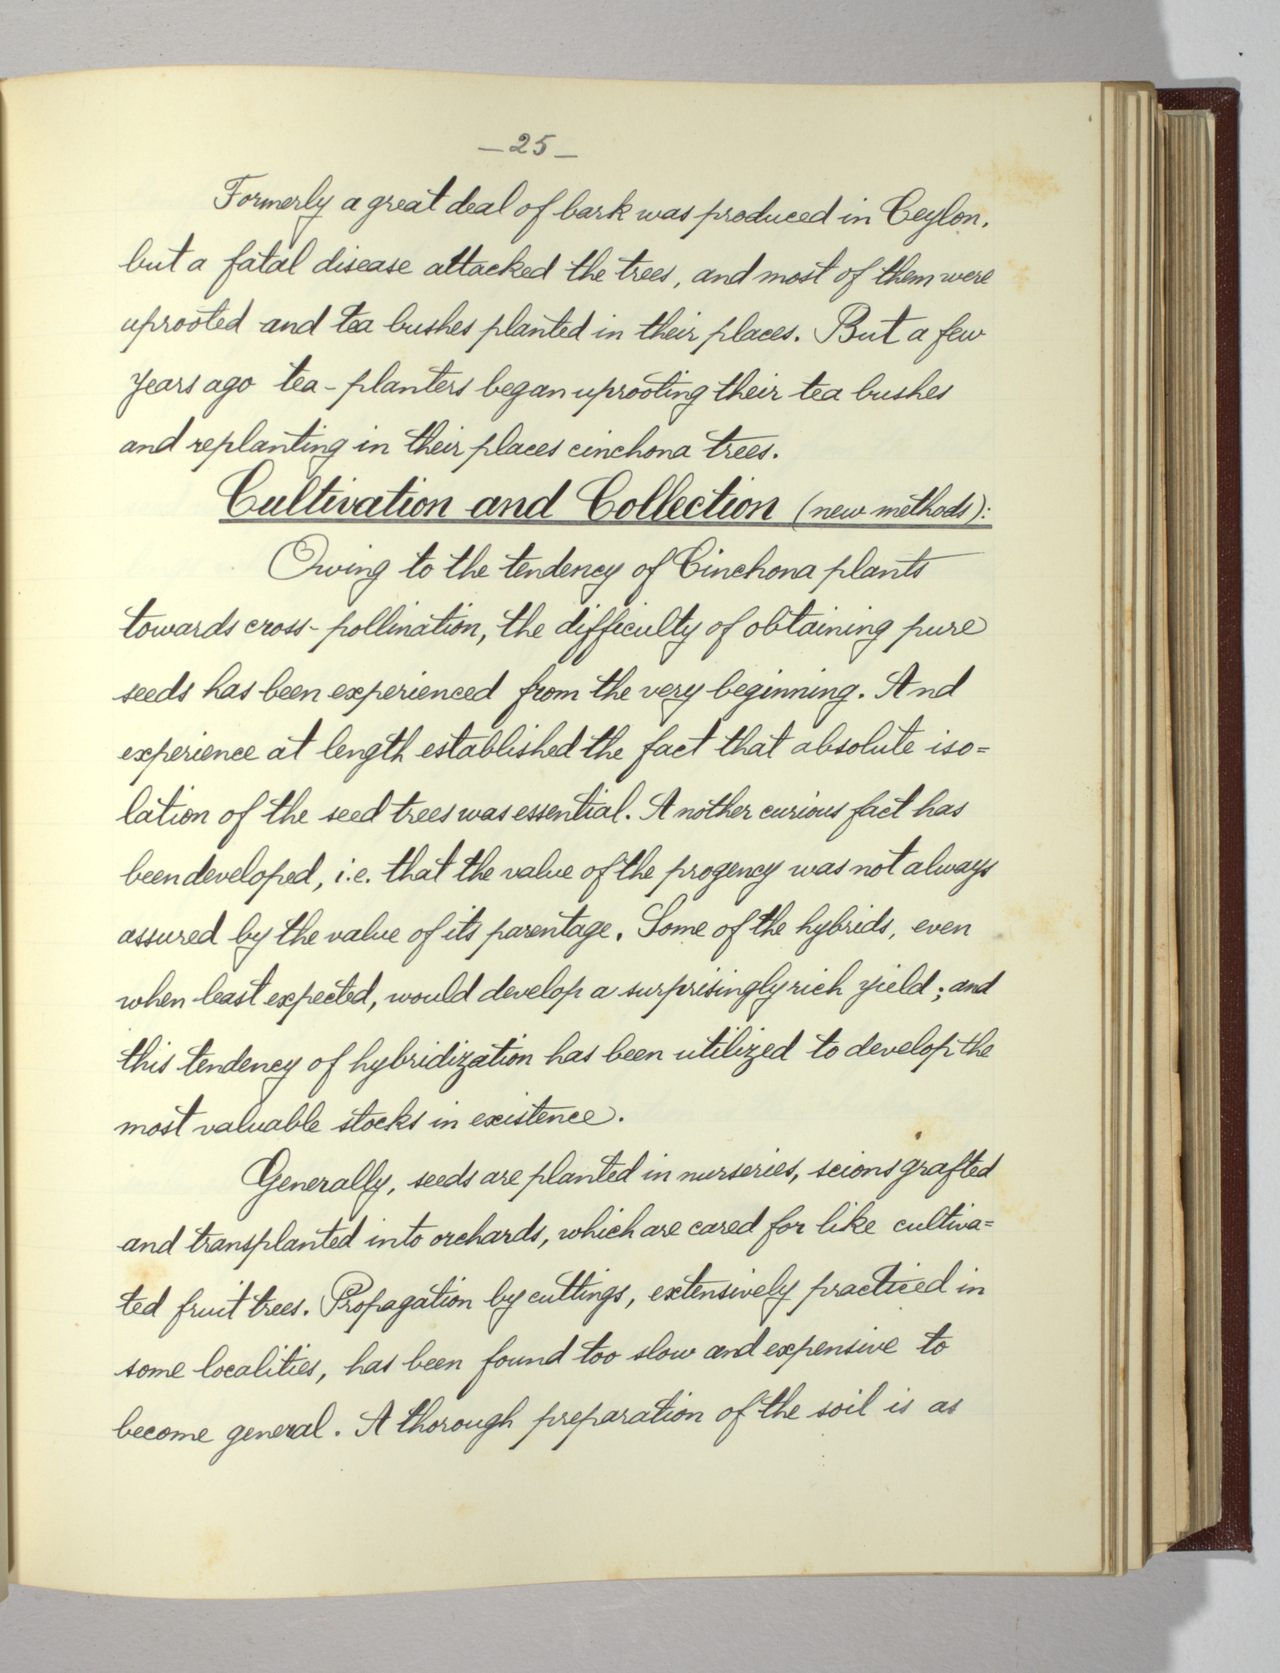 — 25 —
Formerly a great deal of bark was produced in Ceylon,
but a fatal disease attacked the trees, and most of them were
uprooted and tea bushes planted in their places. But a few
years ago tea-planters began uprooting their tea bushes
and replanting in their places cinchona trees.
Cultivation and Collection (new methods):
Owing to the tendency of Cinchona plants
towards cross-pollination, the difficulty of obtaining pure
seeds has been experienced from the very beginning. And
experience at length established the fact that absolute iso=
lation of the seed trees was essential. Another curious fact has
been developed, i.e. that the value of the progency was not always
assured by the value of its parentage. Some of the hybrids, even
when least expected, would develop a surprisingly rich yield; and
this tendency of hybridization has been utilized to develop the
most valuable stocks in existence.
Generally, seeds are planted in nurseries, scions grafted
and transplanted into orchards, which are cared for like cultiva=
ted fruit trees. Propagation by cuttings, extensively practiced in
some localities, has been found too slow and expensive to
become general. A thorough preparation of the soil is as